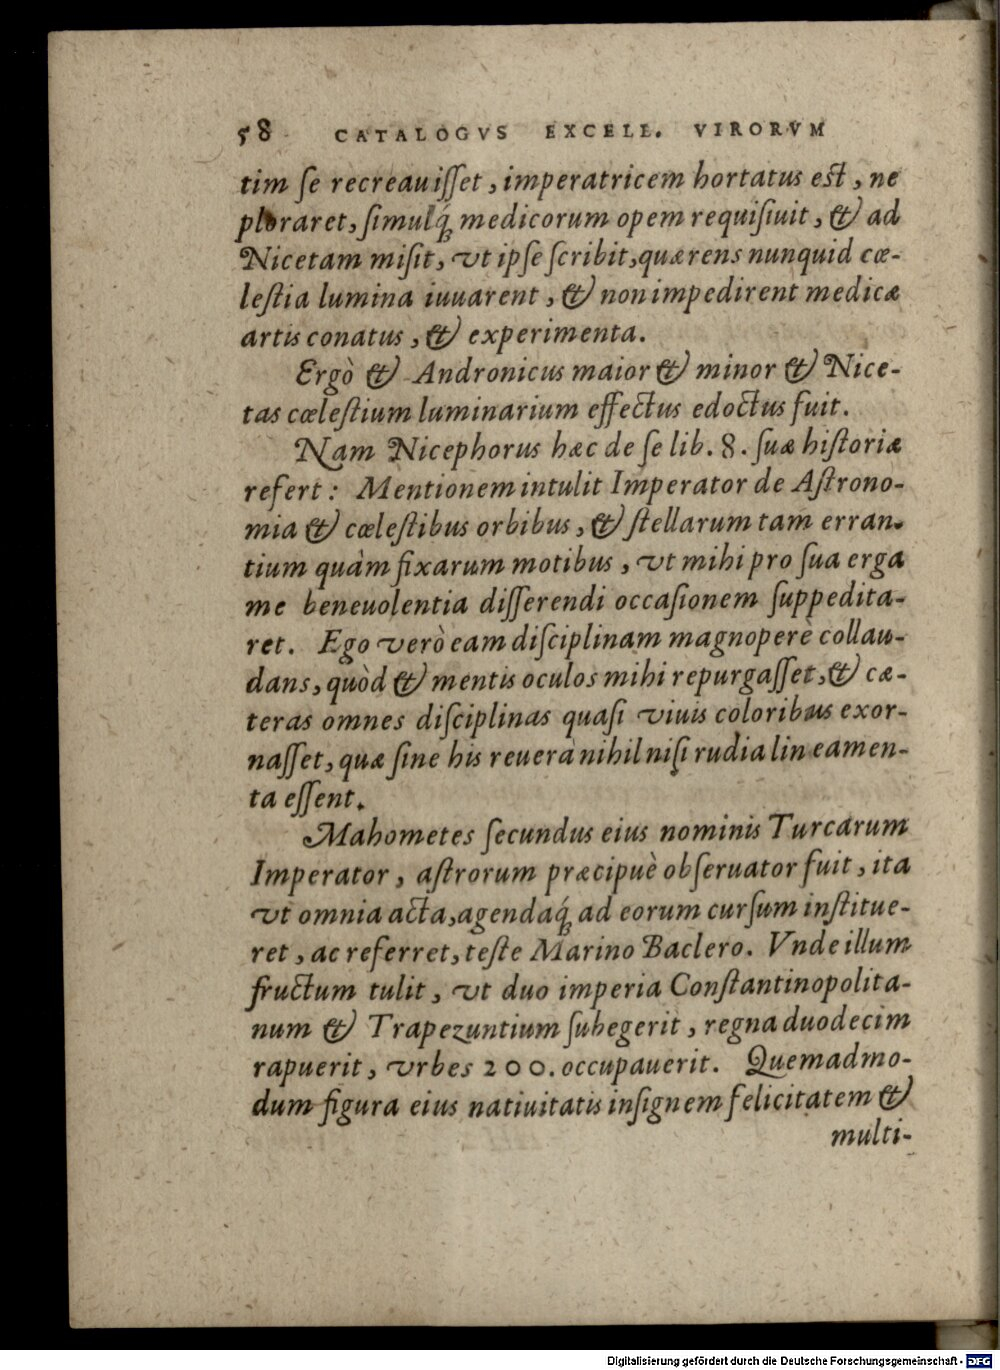 58 CATALOGVS EXCELL. VIRORVM
tim ſe recreauiſſet, imperatricem hortatus eſt, ne
ploraret, ſimulq́ꝫ medicorum opem requiſiuit, & ad
Nicetam miſit, vt ipſe ſcribit, quærens nunquid cœ-
leſtia lumina iuuarent, & non impedirent medicæ
artis conatus, & experimenta.
Ergò & Andronicus maior & minor & Nice-
tas cœleſtium luminarium effectus edoctus fuit.
Nam Nicephorus hæc de ſe lib. 8. ſuæ hiſtoriæ
refert: Mentionem intulit Imperator de Aſtrono-
mia & cœleſtibus orbibus, & ſtellarum tam erran-
tium quàm fixarum motibus, vt mihi pro ſua erga
me beneuolentia diſſerendi occaſionem ſuppedita-
ret. Ego verò eam diſciplinam magnoperè collau-
dans, quòd & mentis oculos mihi repurgaſſet, & cæ-
teras omnes diſciplinas quaſi viuis coloribus exor-
naſſet, quæ ſine his reuera nihil niſi rudia lineamen-
ta eſſent.
Mahometes ſecundus eius nominis Turcarum
Imperator, aſtrorum præcipuè obſeruator fuit, ita
vt omnia acta, agendaq́ꝫ ad eorum curſum inſtitue-
ret, ac referret, teſte Marino Baclero. Vnde illum
fructum tulit, vt duo imperia Conſtantinopolita-
num & Trapezuntium ſubegerit, regna duodecim
rapuerit, vrbes 200. occupauerit. Quemadmo-
dum figura eius natiuitatis inſignem felicitatem &
multi-
Digitalisierung gefördert durch die Deutsche Forschungsgemeinschaft - DFG